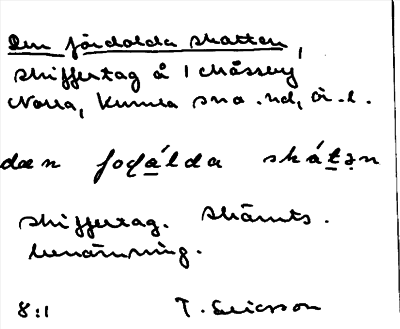 Den fördolda skatten,
skiffertag å 1 Måssby
Norra, Kumla sna. nd, Ör. l.
dæn foḍá̱lda skát̲ə̣n
skiffertag. Skämts.
benämning.
8:1 T. Ericsson